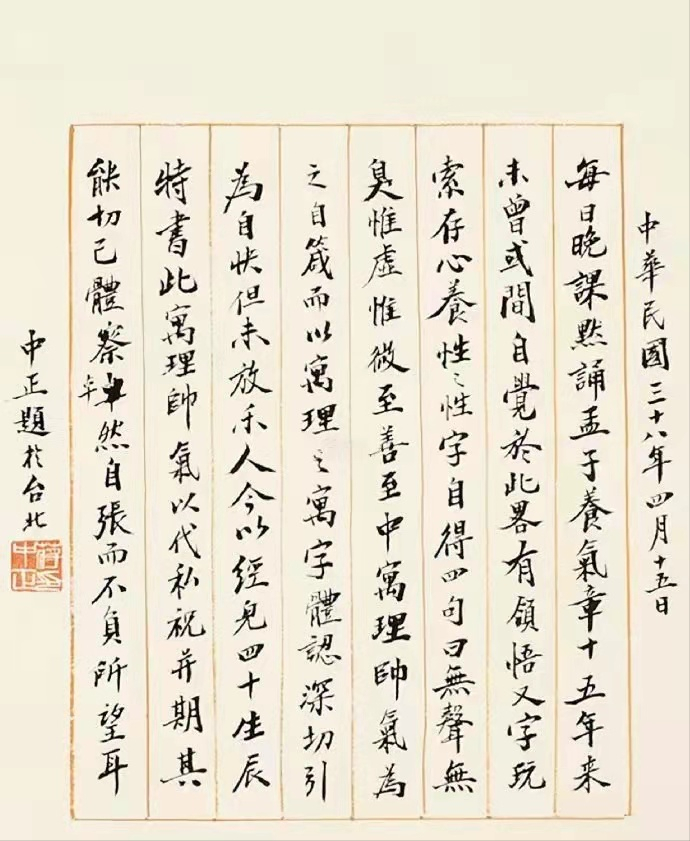 中華民國三十八年四月十五日
每日晚課默誦孟子養氣章十五年来
未曾或間自覺於此畧有領悟又字玩
索存心養性之性字自得四句曰無聲無
臭惟虛惟微至善至中寓理帥氣為
之自箴而以寓理之寓字體認深切引
為自快但未敢示人今以經兒四十生辰
特書此寓理帥氣以代私祝并期其
能切己體察卓然自張而不負所望耳
中正題於台北